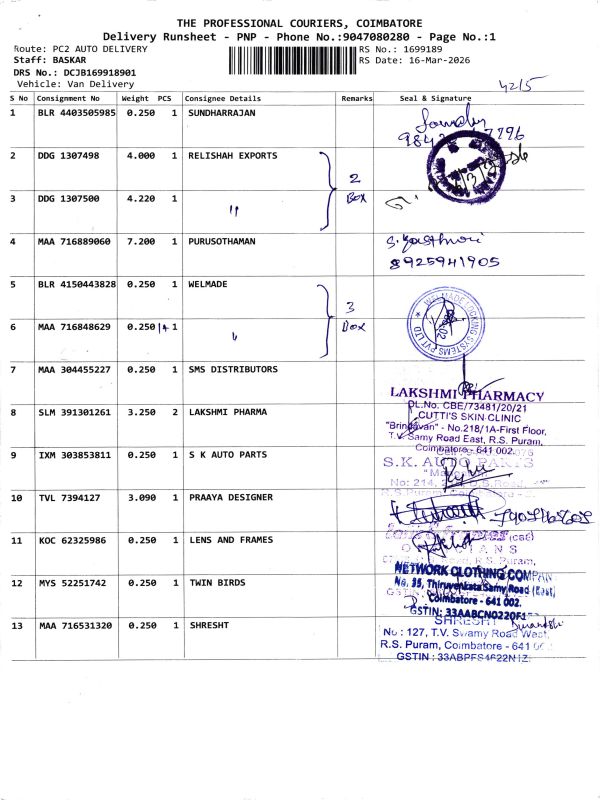 THE PROFESSIONAL COURIERS, COIMBATORE
Delivery Runsheet - PNP - Phone No.:9047080280 - Page No.:1
Route: PC2 AUTO DELIVERY
RS No.: 1699189
Staff: BASKAR
RS Date: 16-Mar-2026
DRS No.: DCJB169918901
Vehicle: Van Delivery
42/5
S No Consignment No Weight PCS Consignee Details Remarks Seal & Signature
1 BLR 4403505985 0.250 1 SUNDHARRAJAN
2 DDG 1307498 4.000 1 RELISHAH EXPORTS
2
Box
3 DDG 1307500 4.220 1 "
4 MAA 716889060 7.200 1 PURUSOTHAMAN
8925941905
5 BLR 4150443828 0.250 1 WELMADE
3
Box
WELMADE LOCKING SYSTEMS PVT LTD
6 MAA 716848629 0.250 1 "
7 MAA 304455227 0.250 1 SMS DISTRIBUTORS
LAKSHMI PHARMACY
DL.No. CBE/73481/20/21
8 SLM 391301261 3.250 2 LAKSHMI PHARMA
CUTTI'S SKIN CLINIC
"Brindavan" - No.218/1A-First Floor,
T.V. Samy Road East, R.S. Puram,
Coimbatore - 641 002.
9 IXM 303853811 0.250 1 S K AUTO PARTS
S.K. AUTO PARTS
No: 214,
R.S. Puram,
10 TVL 7394127 3.090 1 PRAAYA DESIGNER
11 KOC 62325986 0.250 1 LENS AND FRAMES
R.S. Puram,
12 MYS 52251742 0.250 1 TWIN BIRDS
NETWORK CLOTHING COMPAN
No. 35, Thiruvenkata Samy Road (East)
Coimbatore - 641 002.
GSTIN: 33AABCN0220F1
13 MAA 716531320 0.250 1 SHRESHT
SHRESHT
No : 127, T.V. Swamy Road West,
R.S. Puram, Coimbatore - 641
GSTIN : 33ABPFS4622N1Z